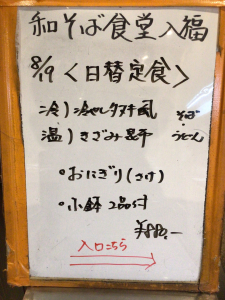 和そば食堂入福
8/19 <日替定食>
冷) 冷やしタヌキ風 そば
温) きざみ昆布 うどん
・おにぎり(さけ)
・小鉢 2品付
¥880.-
入口こちら